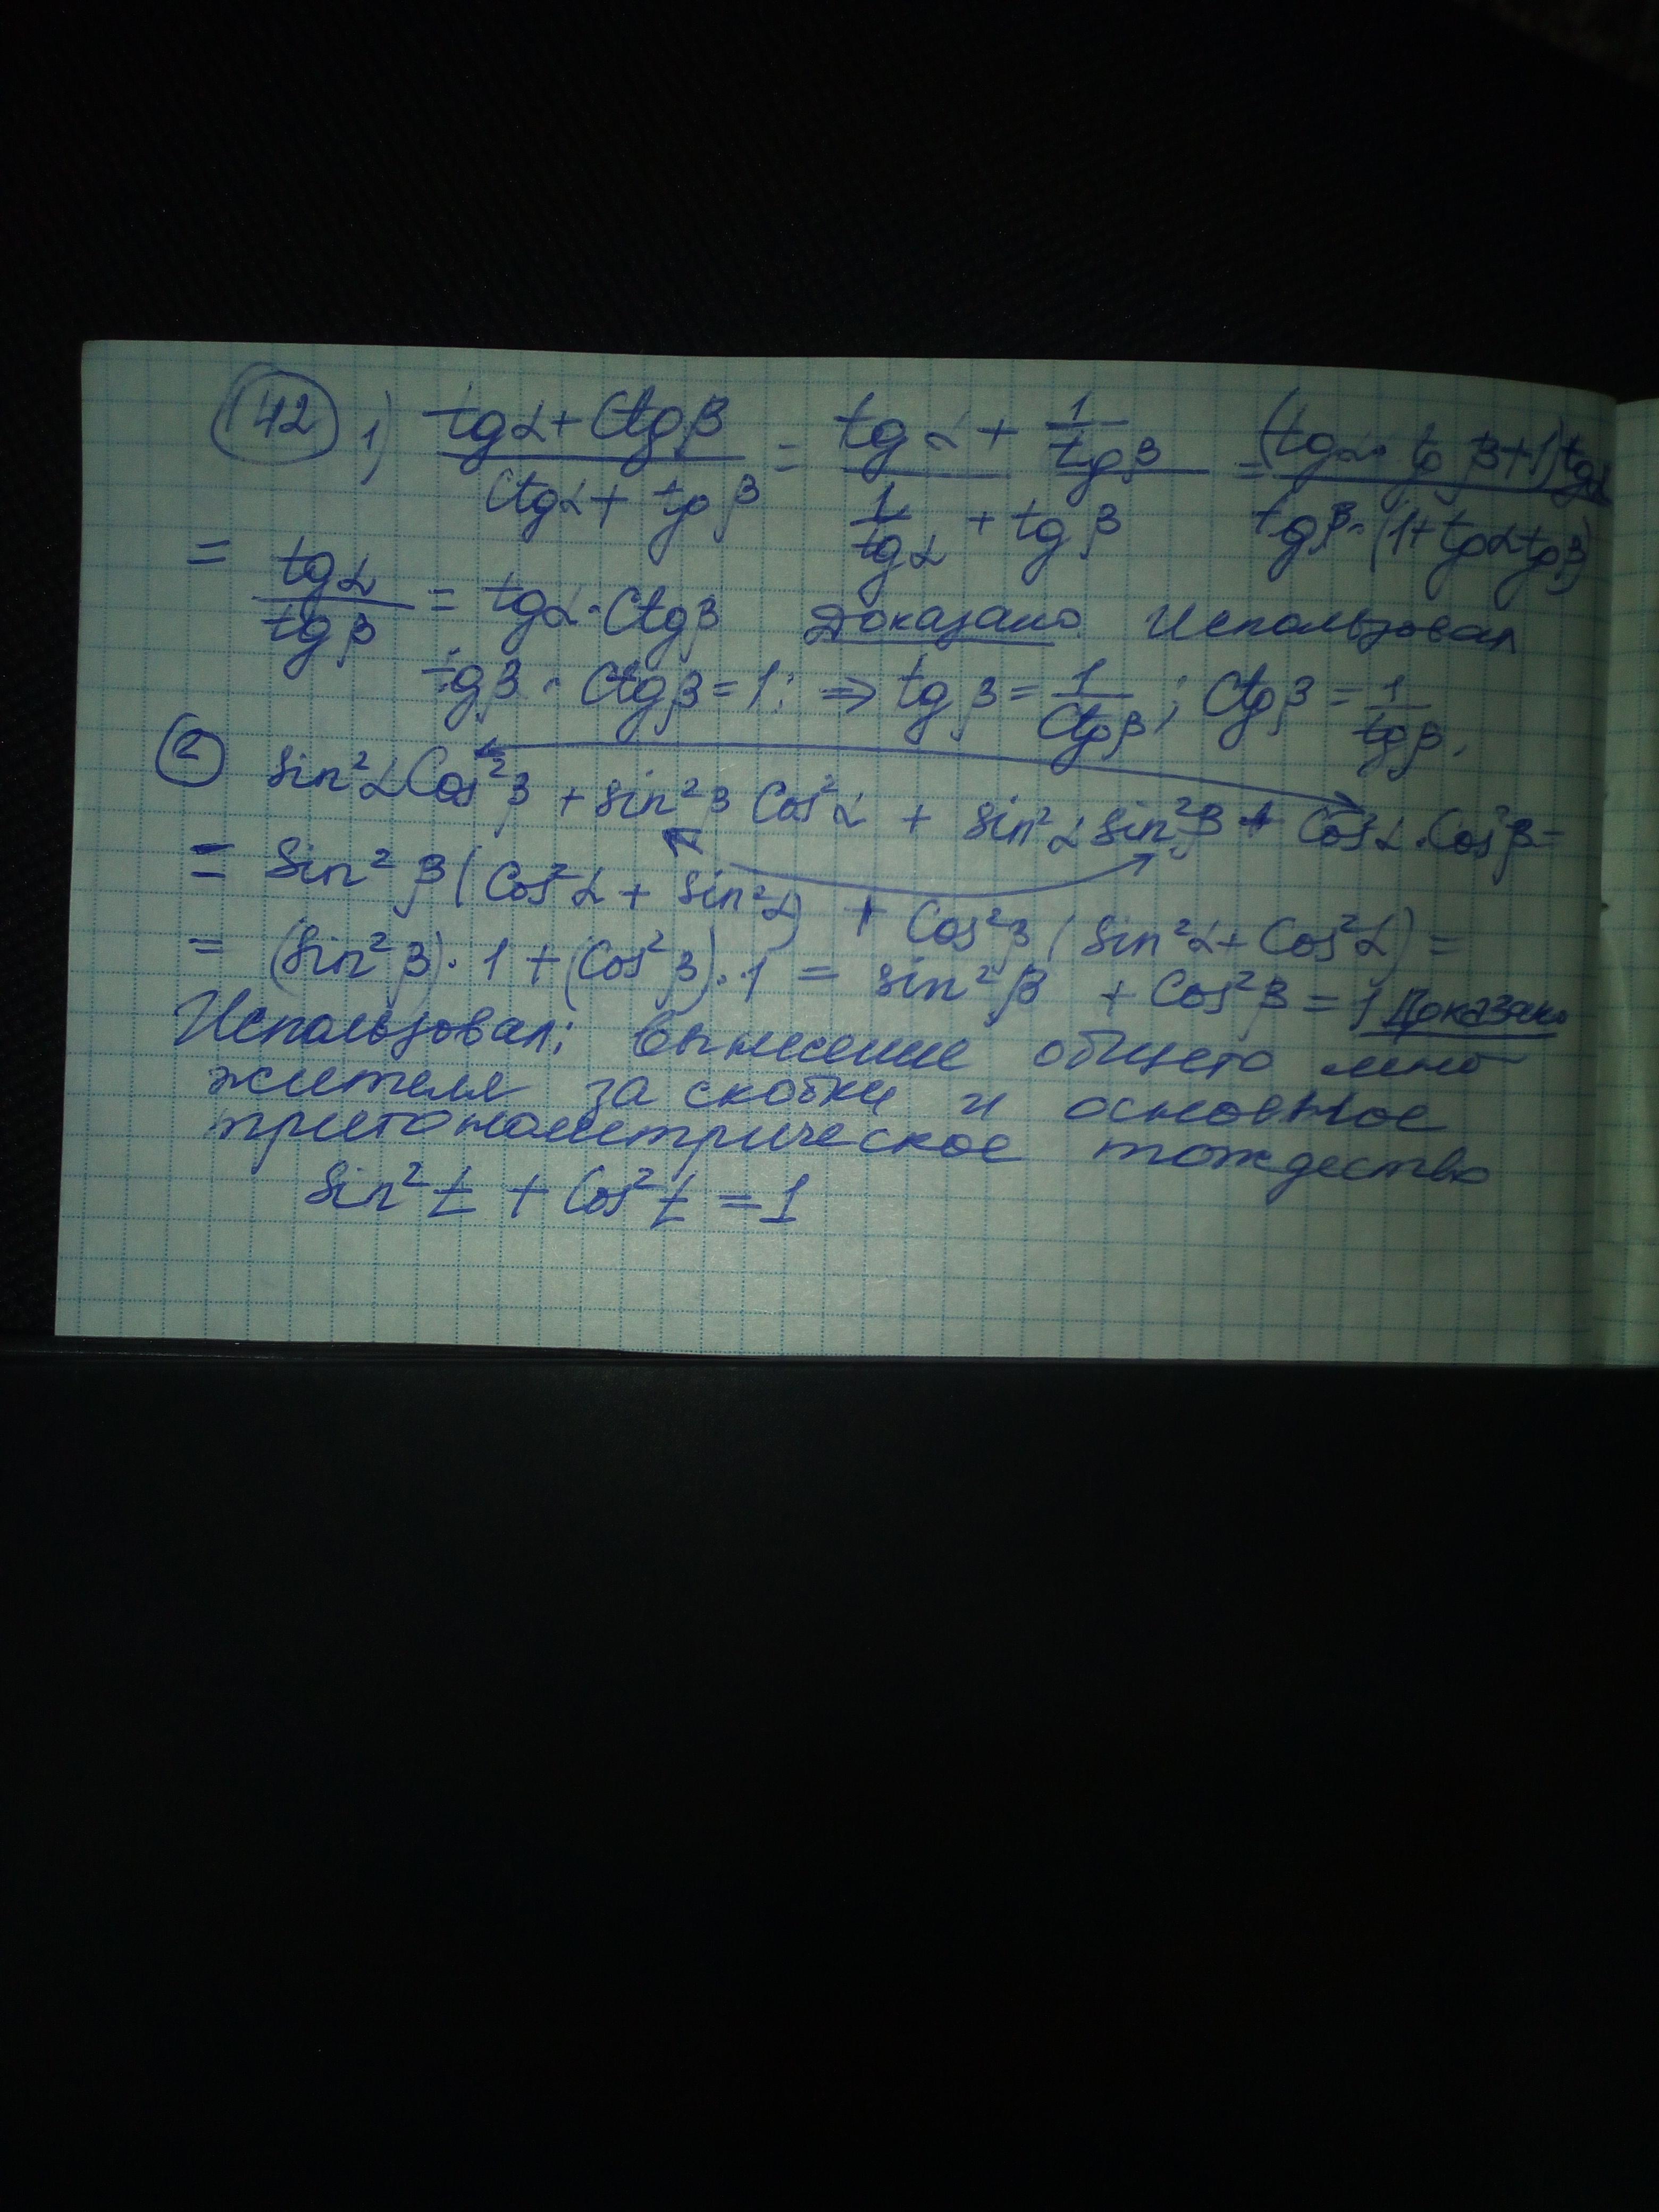 142 1) (tgα + Ctgβ)/(Ctgα + tgβ) = (tgα + 1/tgβ)/(1/tgα + tgβ) = (tgα·tgβ+1)tgα/(tgβ·(1+tgαtgβ))
= tgα/tgβ = tgα·Ctgβ Доказано Использовал
tgβ · Ctgβ = 1; ⇒ tgβ = 1/Ctgβ; Ctgβ = 1/tgβ.
2 Sin²αCos²β + Sin²β Cos²α + Sin²α Sin²β + Cos²α·Cos²β =
= Sin²β(Cos²α + Sin²α) + Cos²β(Sin²α + Cos²α) =
= (Sin²β)·1 + (Cos²β)·1 = Sin²β + Cos²β = 1 Доказано
Использовал: вынесение общего мно-
жителя за скобки и основное
тригонометрическое тождество
Sin²t + Cos²t = 1